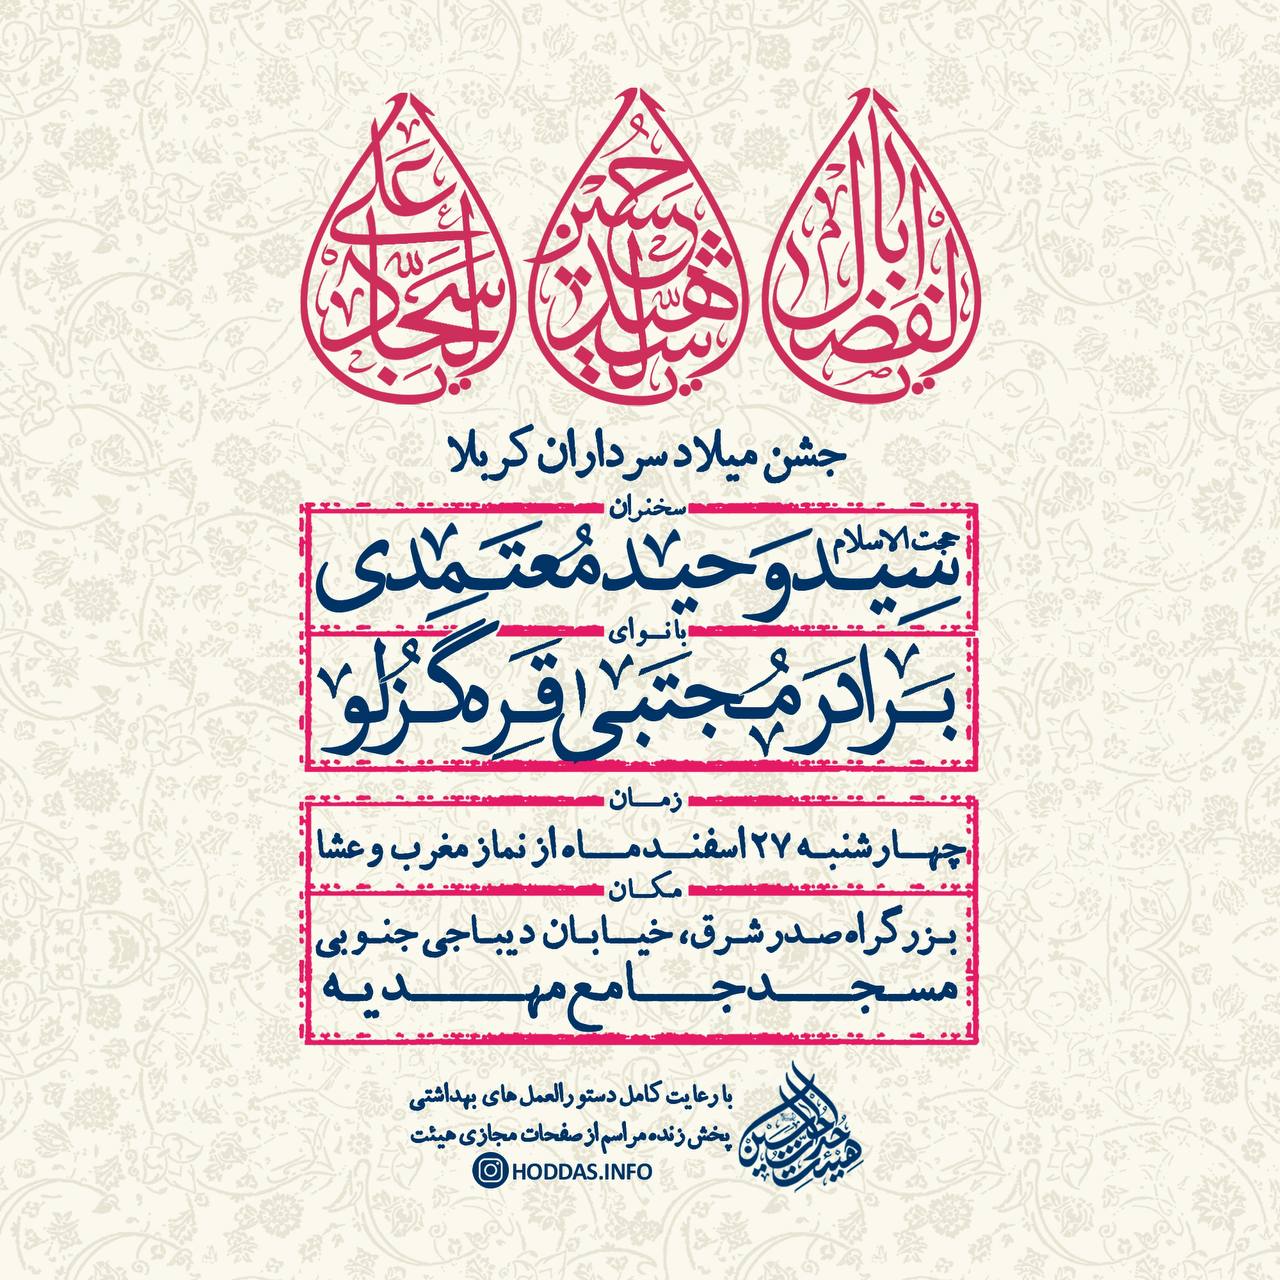 یا اباالفضل
یا سیدالشهید
حسین
یا سجاد
علی
جشن میلاد سرداران کربلا
سخنران
حجت الاسلام
سید وحید معتمدی
بانوای
برادر مجتبی قره گزلو
زمان
چهارشنبه ۲۷ اسفندماه از نماز مغرب و عشا
مکان
بزرگراه صدر شرق، خیابان دیباجی جنوبی
مسجد جامع مهدیه
با رعایت کامل دستورالعمل های بهداشتی
پخش زنده مراسم از صفحات مجازی هیئت
HODDAS.INFO